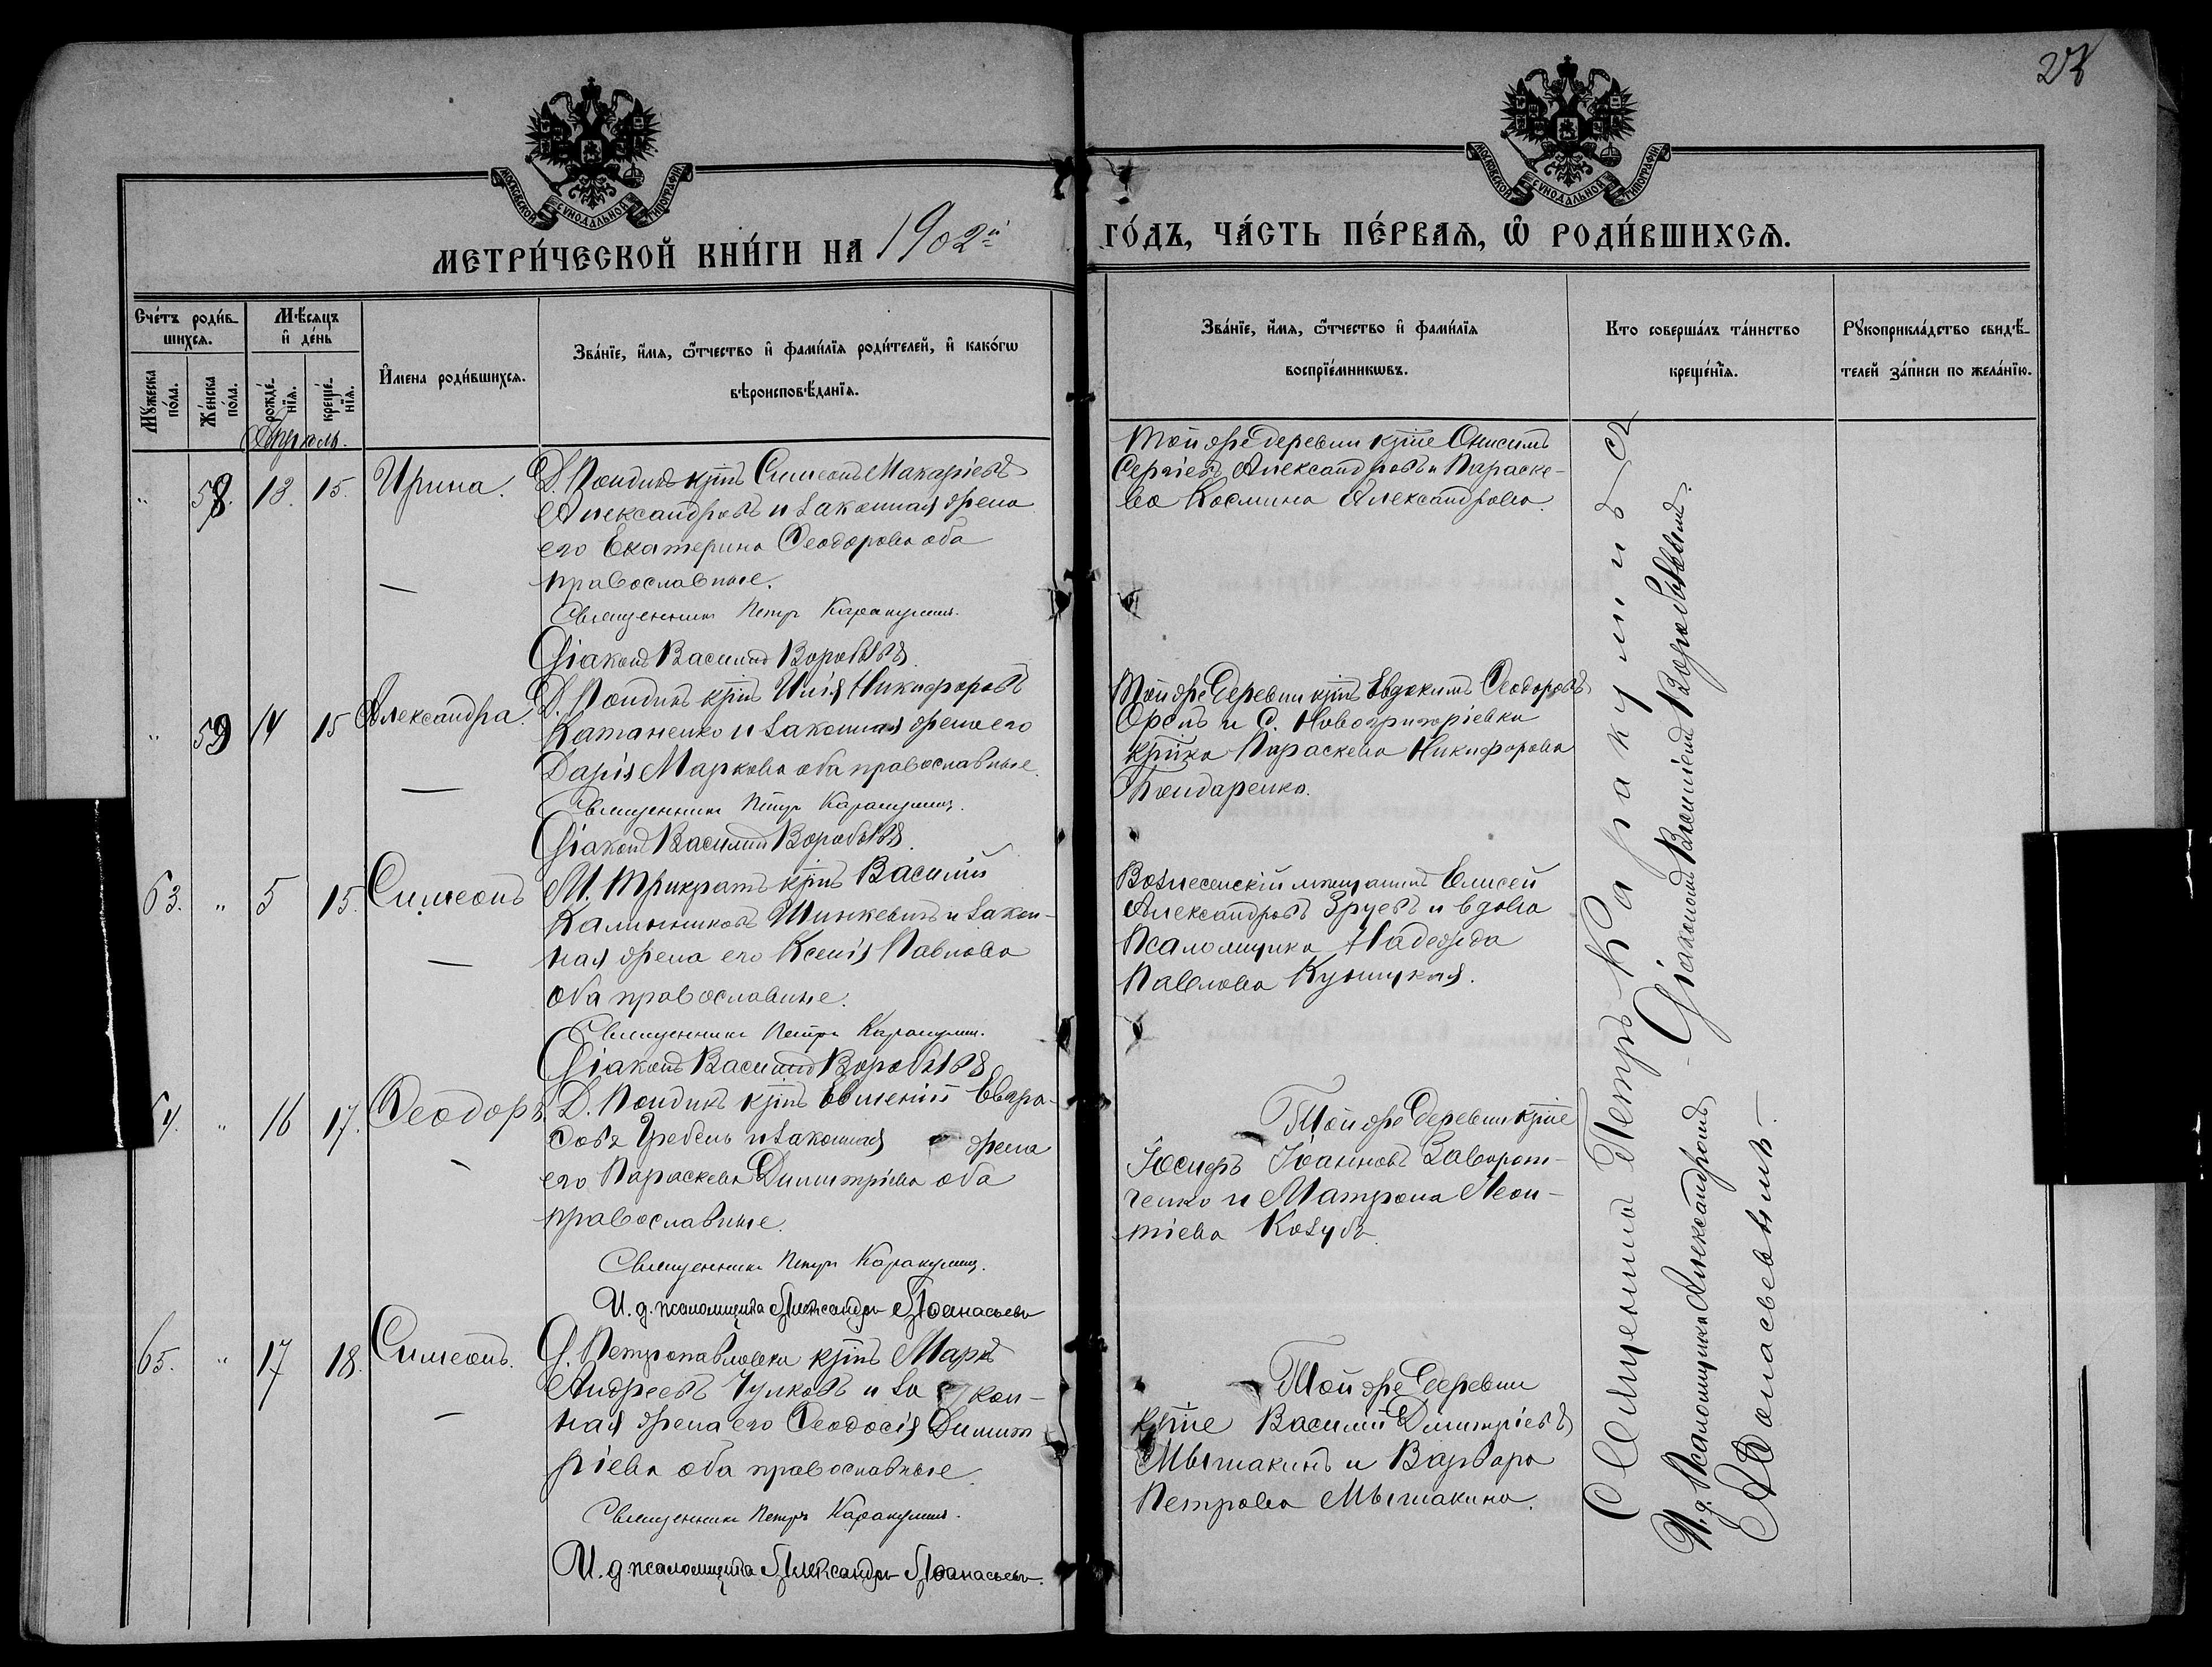 27
МОСКОВСКОЙ СѴНОДАЛЬНОЙ ТИПОГРАФІИ
МОСКОВСКОЙ СѴНОДАЛЬНОЙ ТИПОГРАФІИ
МЕТРИ́ЧЕСКОЙ КНИ́ГИ НА 1902й
ГО́ДЪ, ЧА́СТЬ ПЕ́РВАѦ, Ѡ РОДИ́ВШИХСѦ.
Сче́тъ роди́в-
шихсѧ.
Мꙋ́жеска по́ла.
Же́нска по́ла.
Мѣ́сѧцъ
и҆ де́нь
рожде́-
нїѧ.
креще́-
нїѧ.
И҆мена роди́вшихсѧ.
Зва́нїе, и҆́мѧ, ѻ҆́тчество и҆ фами́лїѧ роди́телей, и҆ како́гѡ
вѣроисповѣ́данїѧ.
Зва́нїе, и҆́мѧ, ѻ҆́тчество и҆ фами́лїѧ
воспрїе́мникѡвъ.
Кто соверша́лъ та́инство
креще́нїѧ.
Рꙋкоприкла́дство свидѣ́-
телей за́писи по жела́нїю.
Апрель.
" 58. 13. 15. Ирина.
Д. Пондикъ кр̅нъ Симеонъ Макаріевъ
Александровъ и законная жена
его Екатерина Ѳеодорова оба
православные.
Священникъ Петръ Каракулинъ.
Діаконъ Василій Воробьевъ.
Той же деревни кр̅не Онисимъ
Сергіевъ Александровъ и Параске-
ва Космина Александрова.
" 59 14 15 Александра.
Д. Пондикъ кр̅нъ Илія Никифоровъ
Катаненко и законная жена его
Дарія Маркова оба православные.
Священникъ Петръ Каракулинъ.
Діаконъ Василій Воробьевъ.
Той же деревни кр̅нъ Евдокимъ Ѳеодоровъ
Орелъ и С. Новогригорієвки
кр̅нка Параскева Никифорова
Бондаренко.
63. " 5 15. Симеонъ
М. Трикратъ кр̅нъ Василій
Калинниковъ Шинкевичъ и закон-
ная жена его Ксенія Павлова
оба православные.
Священникъ Петръ Каракулинъ.
Діаконъ Василій Воробьевъ
Вознесенскій мѣщанинъ Елисей
Александровъ Зруевъ и вдова
Псаломщика Надежда
Павлова Куницкая.
64. " 16 17. Ѳеодоръ.
Д. Пондикъ кр̅нъ Евменій Евара-
довъ Гребень и законная жена
его Параскева Димитріева оба
православные.
Священникъ Петръ Каракулинъ.
И. д. псаломщика Александръ Аѳанасьевъ
Той же деревни кр̅не
Іосифъ Іоанновъ Заворот-
ченко и Матрона Леон-
тіева Козубъ.
65. " 17 18. Симеонъ.
Д. Петропавловки кр̅нъ Маркъ
Андреевъ Чулковъ и за кон-
ная жена его Ѳеодосія Димит
ріева оба православные
Священникъ Петръ Каракулинъ.
И. д. псаломщика Александръ Аѳанасьевъ.
Той же деревни
кр̅не Василій Димитріевъ
Мышакинъ и Варвара
Петрова Мышакина.
Священникъ Петръ Каракулинъ съ
Діакономъ Василіемъ Воробьевымъ.
И. д. Псаломщика Александромъ
Аѳонасьевымъ